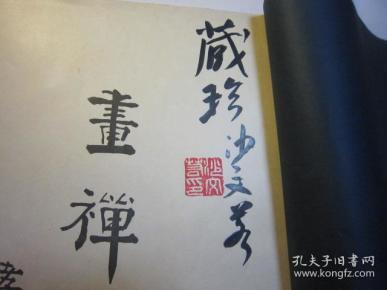 藏珍 沙文若
畫禪
孔夫子旧书网